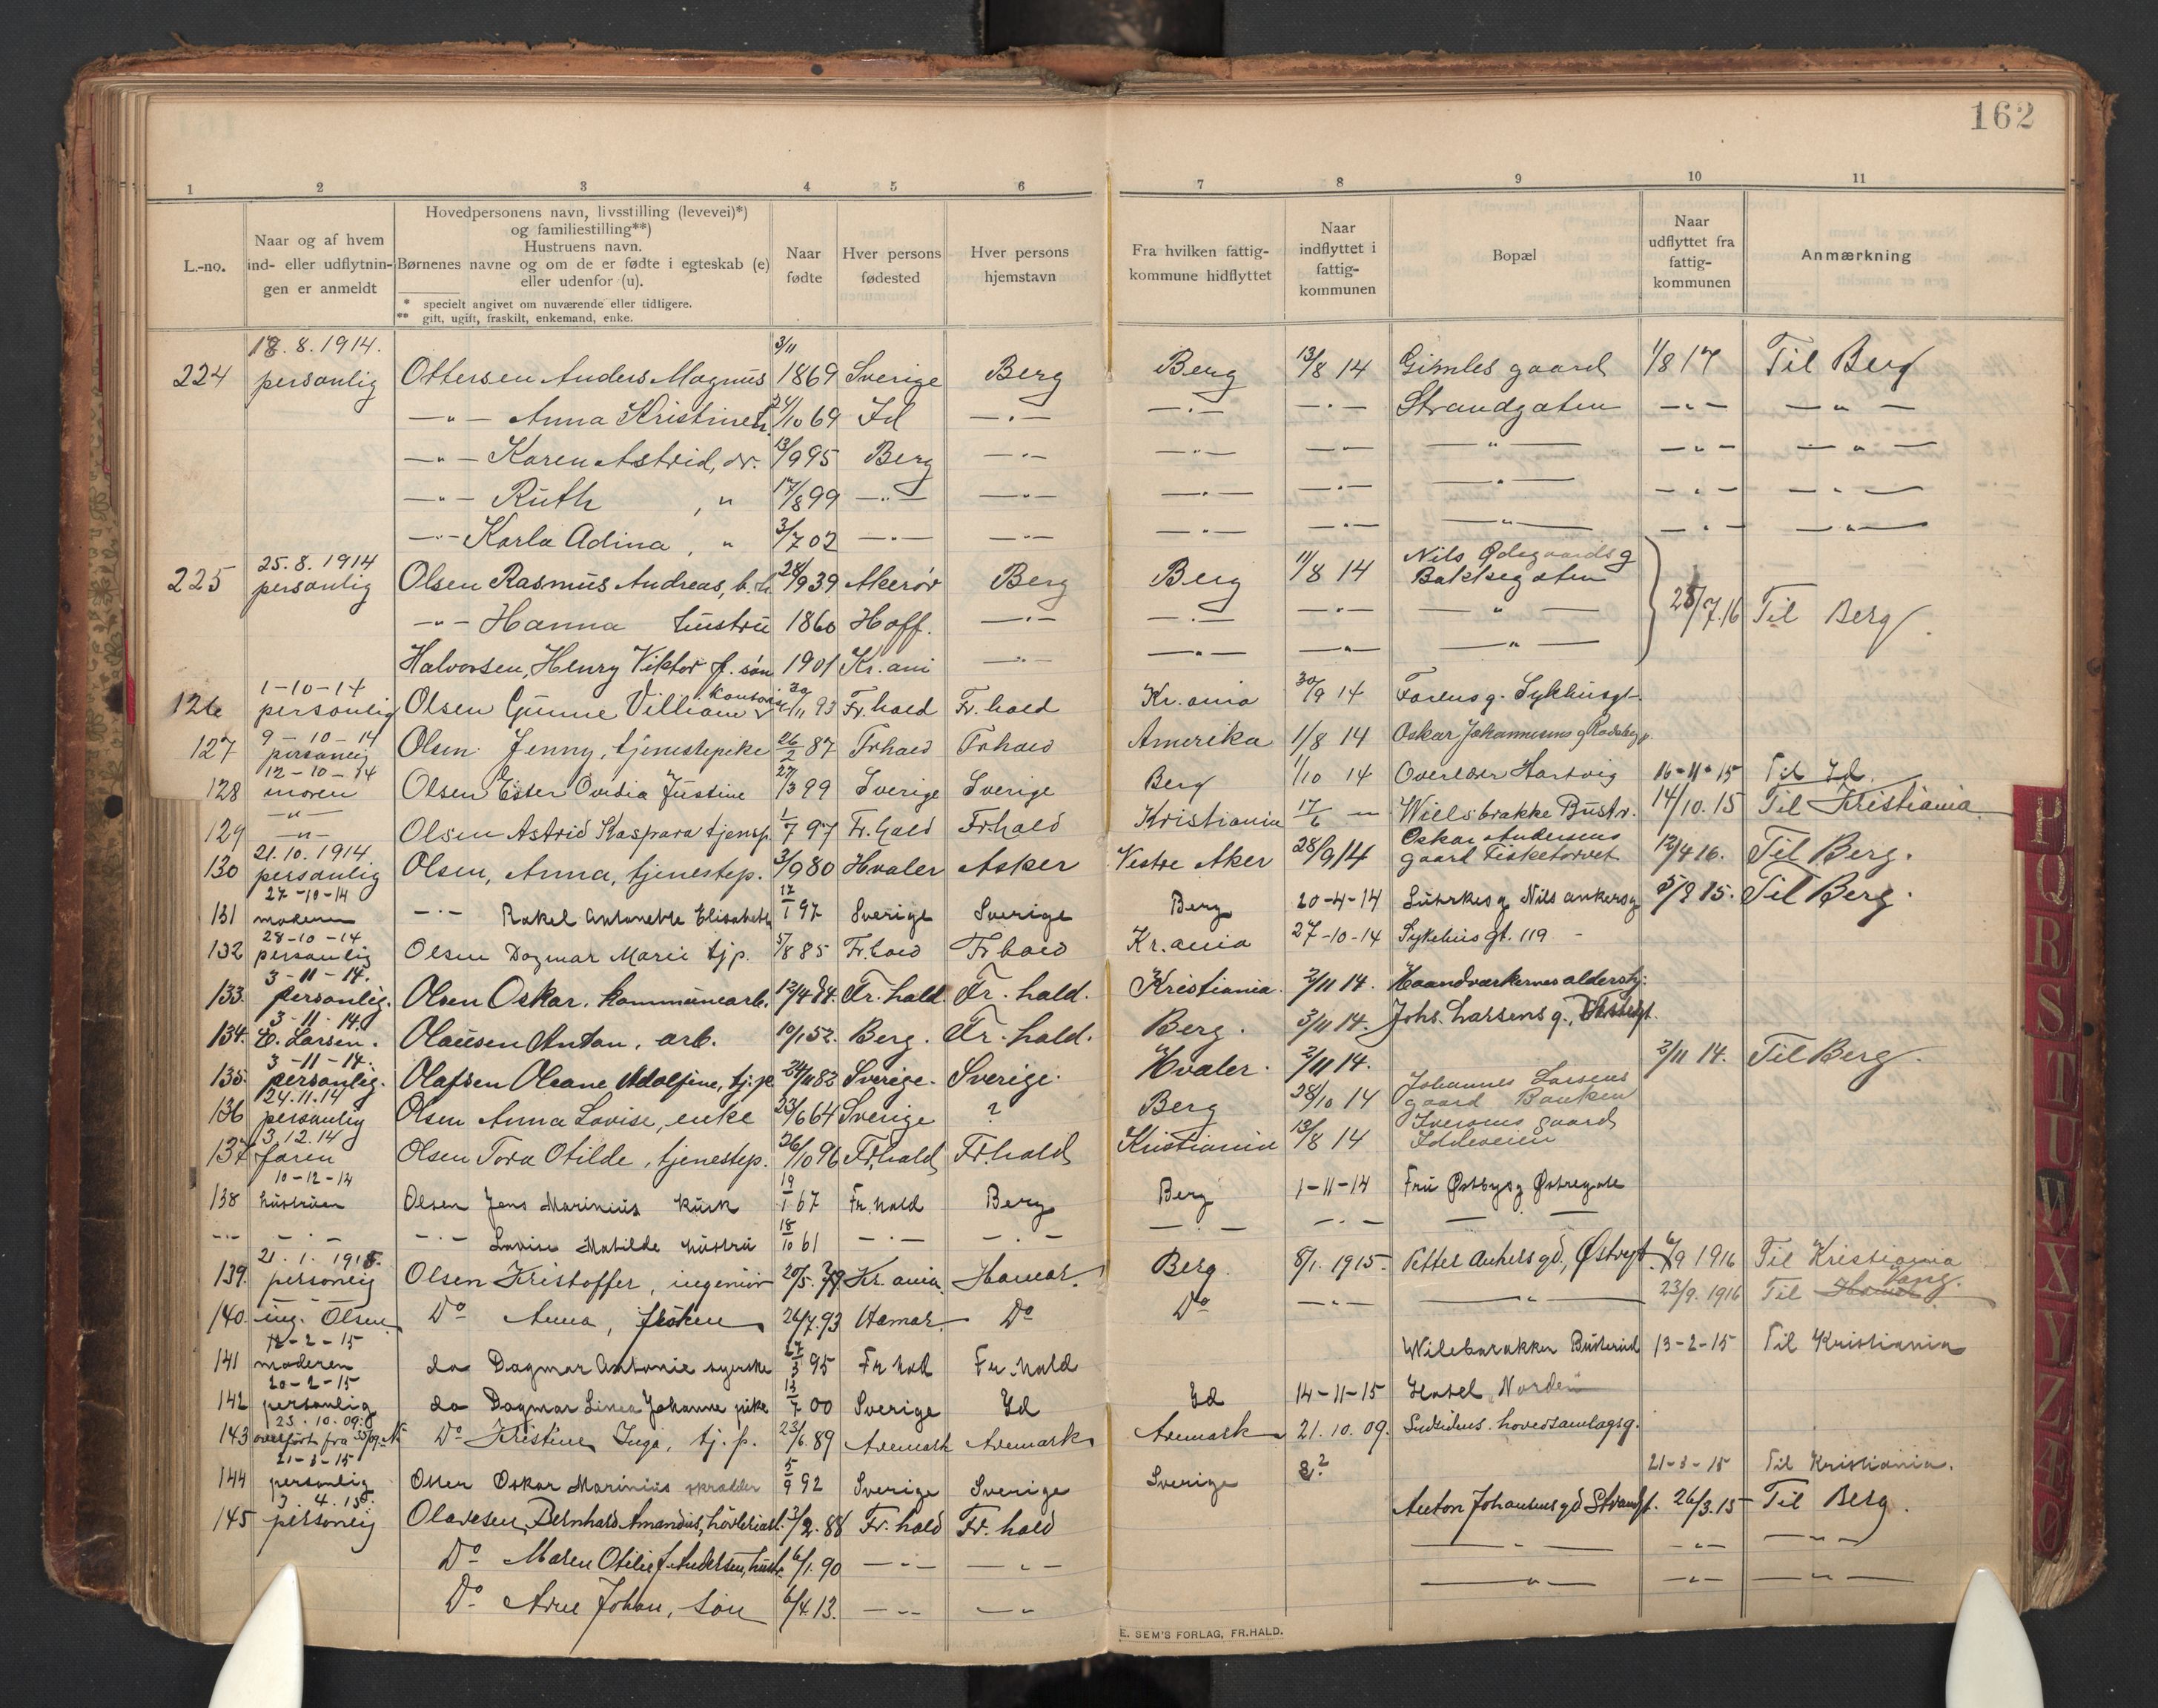 162
1 2 3 4 5 6 7 8 9 10 11
L.-no.
Naar og af hvem
ind- eller udflytnin-
gen er anmeldt
Hovedpersonens navn, livsstilling (levevei)*)
og familiestilling**)
Hustruens navn.
Børnenes navne og om de er fødte i egteskab (e)
eller udenfor (u).
* specielt angivet om nuværende eller tidligere.
** gift, ugift, fraskilt, enkemand, enke.
Naar
fødte
Hver persons
fødested
Hver persons
hjemstavn
Fra hvilken fattig-
kommune hidflyttet
Naar
indflyttet i
fattig-
kommunen
Bopæl
Naar
udflyttet fra
fattig-
kommunen
Anmærkning
18.8.1914. 3/11
224 personlig Ottersen Anders Magnus 1869 Sverige Berg Berg 13/8 14 Gimles gaard 1/8 17 Til Berg
—"— Anna Kristine h. 24/10 69 Id —"— —"— —"— Strandgaten —"— —"—
—"— Karen Astrid, dr. 13/9 95 Berg —"— —"— —"— —"— —"— —"—
—"— Ruth, " 17/8 99 —"— —"— —"— —"— —"— —"— —"—
—"— Karla Adina, " 3/7 02 —"— —"— —"— —"— —"— —"— —"—
25.8.1914 Nils Ødegaards g
225 personlig Olsen Rasmus Andreas, 28/9 39 Akerør Berg Berg 11/8 14 Bakkegaten
—"— Hanna hustru 1860 Hoff. —"— —"— —"— —"— 28/7.16 Til Berg.
Halvorsen, Henry Viktor f. søn 1901 Kr.ani —"— —"— —"— —"—
1-10-14
126 personlig Olsen Gunne Villiam 93 Fr.hald Fr.hald Kr.ania 30/9 14 Sykhusgt.
9-10-14
127 personlig Olsen Jenny, tjenestepike 26/2 87 Fr.hald Fr.hald Amerika 1/8 14 Oskar Johannesens g
12-10-14
128 moren Olsen Ester Ovidia Justine 27/3 99 Sverige Sverige Berg 1/10 14 Overlær Hartvig 16-11-15 Til Id.
—"—
129 —"— Olsen Astrid Kaspara tjensp. 1/7 97 Fr.hald Fr.hald Kristiania 17/6 — Wielsbrakke Bustr. 14/10.15 Til Kristiania
21.10.1914 Oskar Andersens
130 personlig Olsen, Anna, tjenestep. 3/9 80 Hvaler Asker Vestre Aker 28/9 14 gaard Fisketorvet 12/4 16. Til Berg.
27-10-14
131 moderen —"— Rakel Antonette Elisabeth 17/1 97 Sverige Sverige Berg 20-4-14 Lührkes g Nils ankersg 5/9 15. Til Berg.
28-10-14
132 personlig Olsen Dagmar Marie tjp. 5/8 85 Fr.hald Fr.hald Kr.ania 27-10-14 Sykehusgt. 119 -
3-11-14.
133. personlig. Olsen Oskar, kommunearb. 12/4 84. Fr.hald. Fr.hald. Kristiania. 2/11 14. Haandværkernes aldershj:
3-11-14.
134. E. Larsen. Olausen Anton, arb. 10/1 52. Berg. Fr.hald. Berg. 3/11 14. Johs. Larsens g.,
3-11-14.
135. personlig. Olafsen Oleane Adolfine, tj.p. 24/11 82 Sverige. Sverige. Hvaler. 2/11 14. 2/11 14. Til Berg.
24.11.14 Johannes Larsens
136 personlig Olsen Anna Lovise, enke 23/6 64 Sverige ? Berg 28/10 14 gaard Banken
3.12.14 Iversens gaard
137 faren Olsen Tora Otilde, tjenestep. 26/10 96 Fr.hald Fr.hald Kristiania 13/8 14 Iddeveien
10-12-14
138 hustruen Olsen Jens Marinius kusk 19/1 67 Fr.hald Berg Berg 1-11-14 Fru Østbys g Østregate
—"— —"— —"— Lovise Matilde hustru 18/10 61 —"— —"— —"— —"— —"—
21.1.1915.
139. personlig Olsen Kristoffer, ingeniør 20/5.79 Kr.ania Hamar. Berg. 8/1.1915. Petter Ankers gd., Østregt. 6/9 1916 Til Kristiania
Vang.
140. ing. Olsen Do Anna, frøken 26/7.93 Hamar. Do Do —"— —"— 23/9.1916 Til Hamar
12-2-15
141 moderen do Dagmar Antonie syerske 27/3 95 Fr hald Fr.hald Wilsbarakken Busterud 13-2-15 Til Kristiania
20-2-15
142 personlig do Dagmar Linea Johanne pike 13/7 00 Sverige Id Id 14-11-15 Hotel Norden
23.10.09:
143 overført fra Do Kristine Inga, tj.p. 23/6.89 Aremark Aremark Aremark 21.10.09. hovedsamlagsg.
21-3-15
144 personlig Oskar Marinius skrædder 5/9 92 Sverige Sverige Sverige ? 21-3-15 Til Kristiania.
3.4.15.
145 personlig Olavesen, Bernhard Amandus, 3/2.88 Fr.hald Fr.hald Anton Johansens gd Strandgt. 26/3.15 Til Berg.
Do Maren Otilie f. Andersen, hustr. 6/1.90 —"— —"— —"— —"— —"—
Do Arne Johan, søn 6/4 13. —"— —"— —"— —"— —"—
E. SEM'S FORLAG, FR.HALD.
P
Q
R
S
T
U
W
X
Y
Z
Æ
Ø